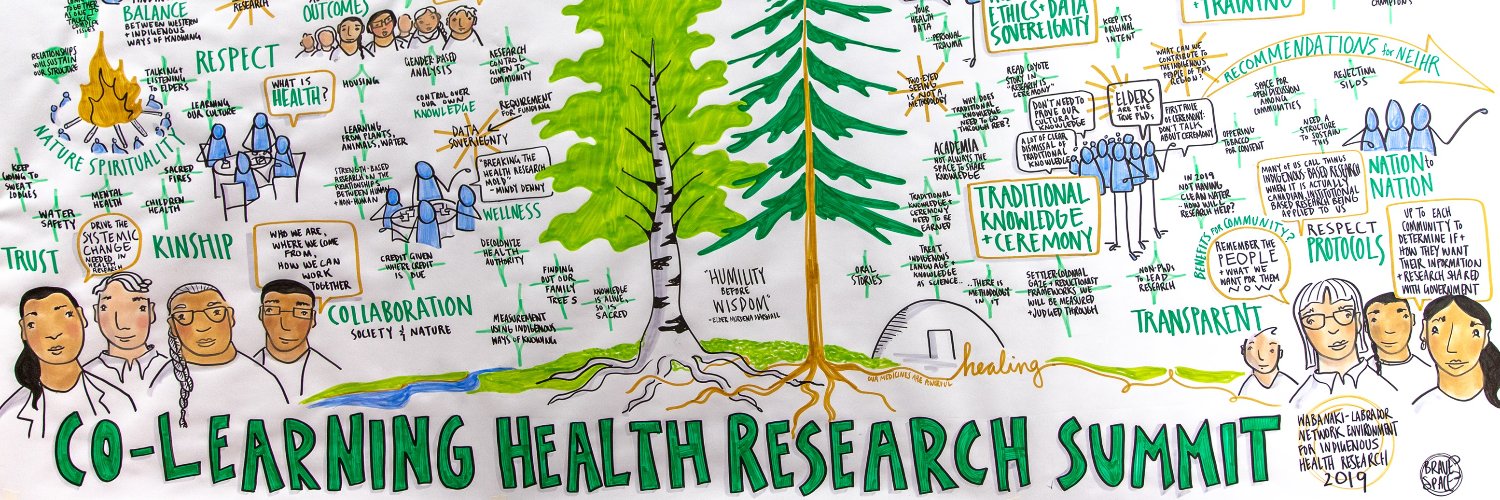 TOGETHER
AS ONE TO
BALANCE
BETWEEN WESTERN
+ INDIGENOUS
WAYS OF KNOWING
RESEARCH
OUTCOMES
RELATIONSHIPS
WILL SUSTAIN
OUR STRUCTURE
TALKING +
LISTENING
TO ELDERS
RESPECT
WHAT IS
HEALTH?
HOUSING
GENDER BASED
ANALYSIS
RESEARCH
CONTROL
GIVEN TO
COMMUNITY
LEARNING
OUR CULTURE
CONTROL OVER
OUR OWN
KNOWLEDGE
REQUIREMENT
FOR FUNDING
NATURE SPIRITUALITY
LEARNING
FROM PLANTS,
ANIMALS, WATER
DATA
SOVEREIGNTY
KEEP
GOING TO
SWEAT
LODGES
MENTAL
HEALTH
SACRED
FIRES
CHILDREN
HEALTH
STRENGTH-BASED
RESEARCH IN THE
RELATIONSHIPS
BETWEEN HUMAN
+ NON-HUMAN
"BREAKING THE
HEALTH RESEARCH
MOLD"
- MINDI DENNY
WELLNESS
WATER
SAFETY
TRUST
DRIVE THE
SYSTEMIC
CHANGE
NEEDED IN
HEALTH
RESEARCH
KINSHIP
WHO WE ARE,
WHERE WE COME
FROM,
HOW WE CAN
WORK
TOGETHER
CREDIT GIVEN
WHERE CREDIT
IS DUE
DECOLONIZE
HEALTH
AUTHORITY
FINDING
OUT OUR
FAMILY
TREES
KNOWLEDGE
IS ALIVE
SO IT'S
SACRED
COLLABORATION
SOCIETY & NATURE
MEASUREMENT
USING INDIGENOUS
WAYS OF KNOWING
"HUMILITY
BEFORE
WISDOM"
- ELDER MURDENA MARSHALL
YOUR
HEALTH
DATA
...PERSONAL
TRAUMA
ETHICS + DATA
SOVEREIGNTY
KEEP ITS
ORIGINAL
INTENT
+ TRAINING
CHAMPIONS
WHAT CAN WE
CONTRIBUTE TO
THE INDIGENOUS
PEOPLE OF THIS
REGION?
RECOMMENDATIONS for NEIHR
TWO-EYED
SEEING
IS NOT A
METHODOLOGY
READ COYOTE
STORY IN
"RESEARCH IS
CEREMONY"
WHY DOES
TRADITIONAL
KNOWLEDGE
NEED TO GO
THROUGH REB?
DON'T NEED TO
PROVE OUR
CULTURAL
KNOWLEDGE
ELDERS
ARE THE
TRUE PhDs
FIRST RULE
OF CEREMONY:
DON'T TALK
ABOUT CEREMONY
SPACE FOR
OPEN DISCUSSION
AMONG
COMMUNITIES
REJECTING
SILOS
A LOT OF CLEAR
DISMISSAL OF
TRADITIONAL
KNOWLEDGE
OFFERING
TOBACCO
FOR CONSENT
NEED A
STRUCTURE
TO SUSTAIN
THIS
ACADEMIA
NOT ALWAYS THE
SPACE TO SHARE
KNOWLEDGE
NATION to
NATION
TRADITIONAL
KNOWLEDGE +
CEREMONY
NEED TO BE
EARNED
TRADITIONAL
KNOWLEDGE
+ CEREMONY
IN 2019
NOT HAVING
CLEAN WATER
- HOW WILL
RESEARCH HELP?
MANY OF US CALL THINGS
INDIGENOUS BASED RESEARCH
WHEN IT IS ACTUALLY
CANADIAN, INSTITUTIONAL
BASED RESEARCH BEING
APPLIED TO US
TREAT
INDIGENOUS
LANGUAGE +
KNOWLEDGE
AS SCIENCE...
...THERE IS
METHODOLOGY
IN IT
ORAL
STORIES
SETTLER-COLONIAL
GAZE + REDUCTIONIST
FRAMEWORKS WE
WILL BE MEASURED
+ JUDGED THROUGH
NON-PhDs
TO LEAD
RESEARCH
BENEFITS FOR COMMUNITY?
REMEMBER THE
PEOPLE
+ WHAT WE
WANT FOR THEM
NOW
RESPECT
PROTOCOLS
UP TO EACH
COMMUNITY TO
DETERMINE IF +
HOW THEY WANT
THEIR INFORMATION
+ RESEARCH SHARED
WITH GOVERNMENT
TRANSPARENT
OUR MEDICINES ARE POWERFUL
healing
CO-LEARNING HEALTH RESEARCH SUMMIT
WABANAKI-LABRADOR
NETWORK ENVIRONMENT
FOR INDIGENOUS
HEALTH RESEARCH
2019
BRAVE
SPACE